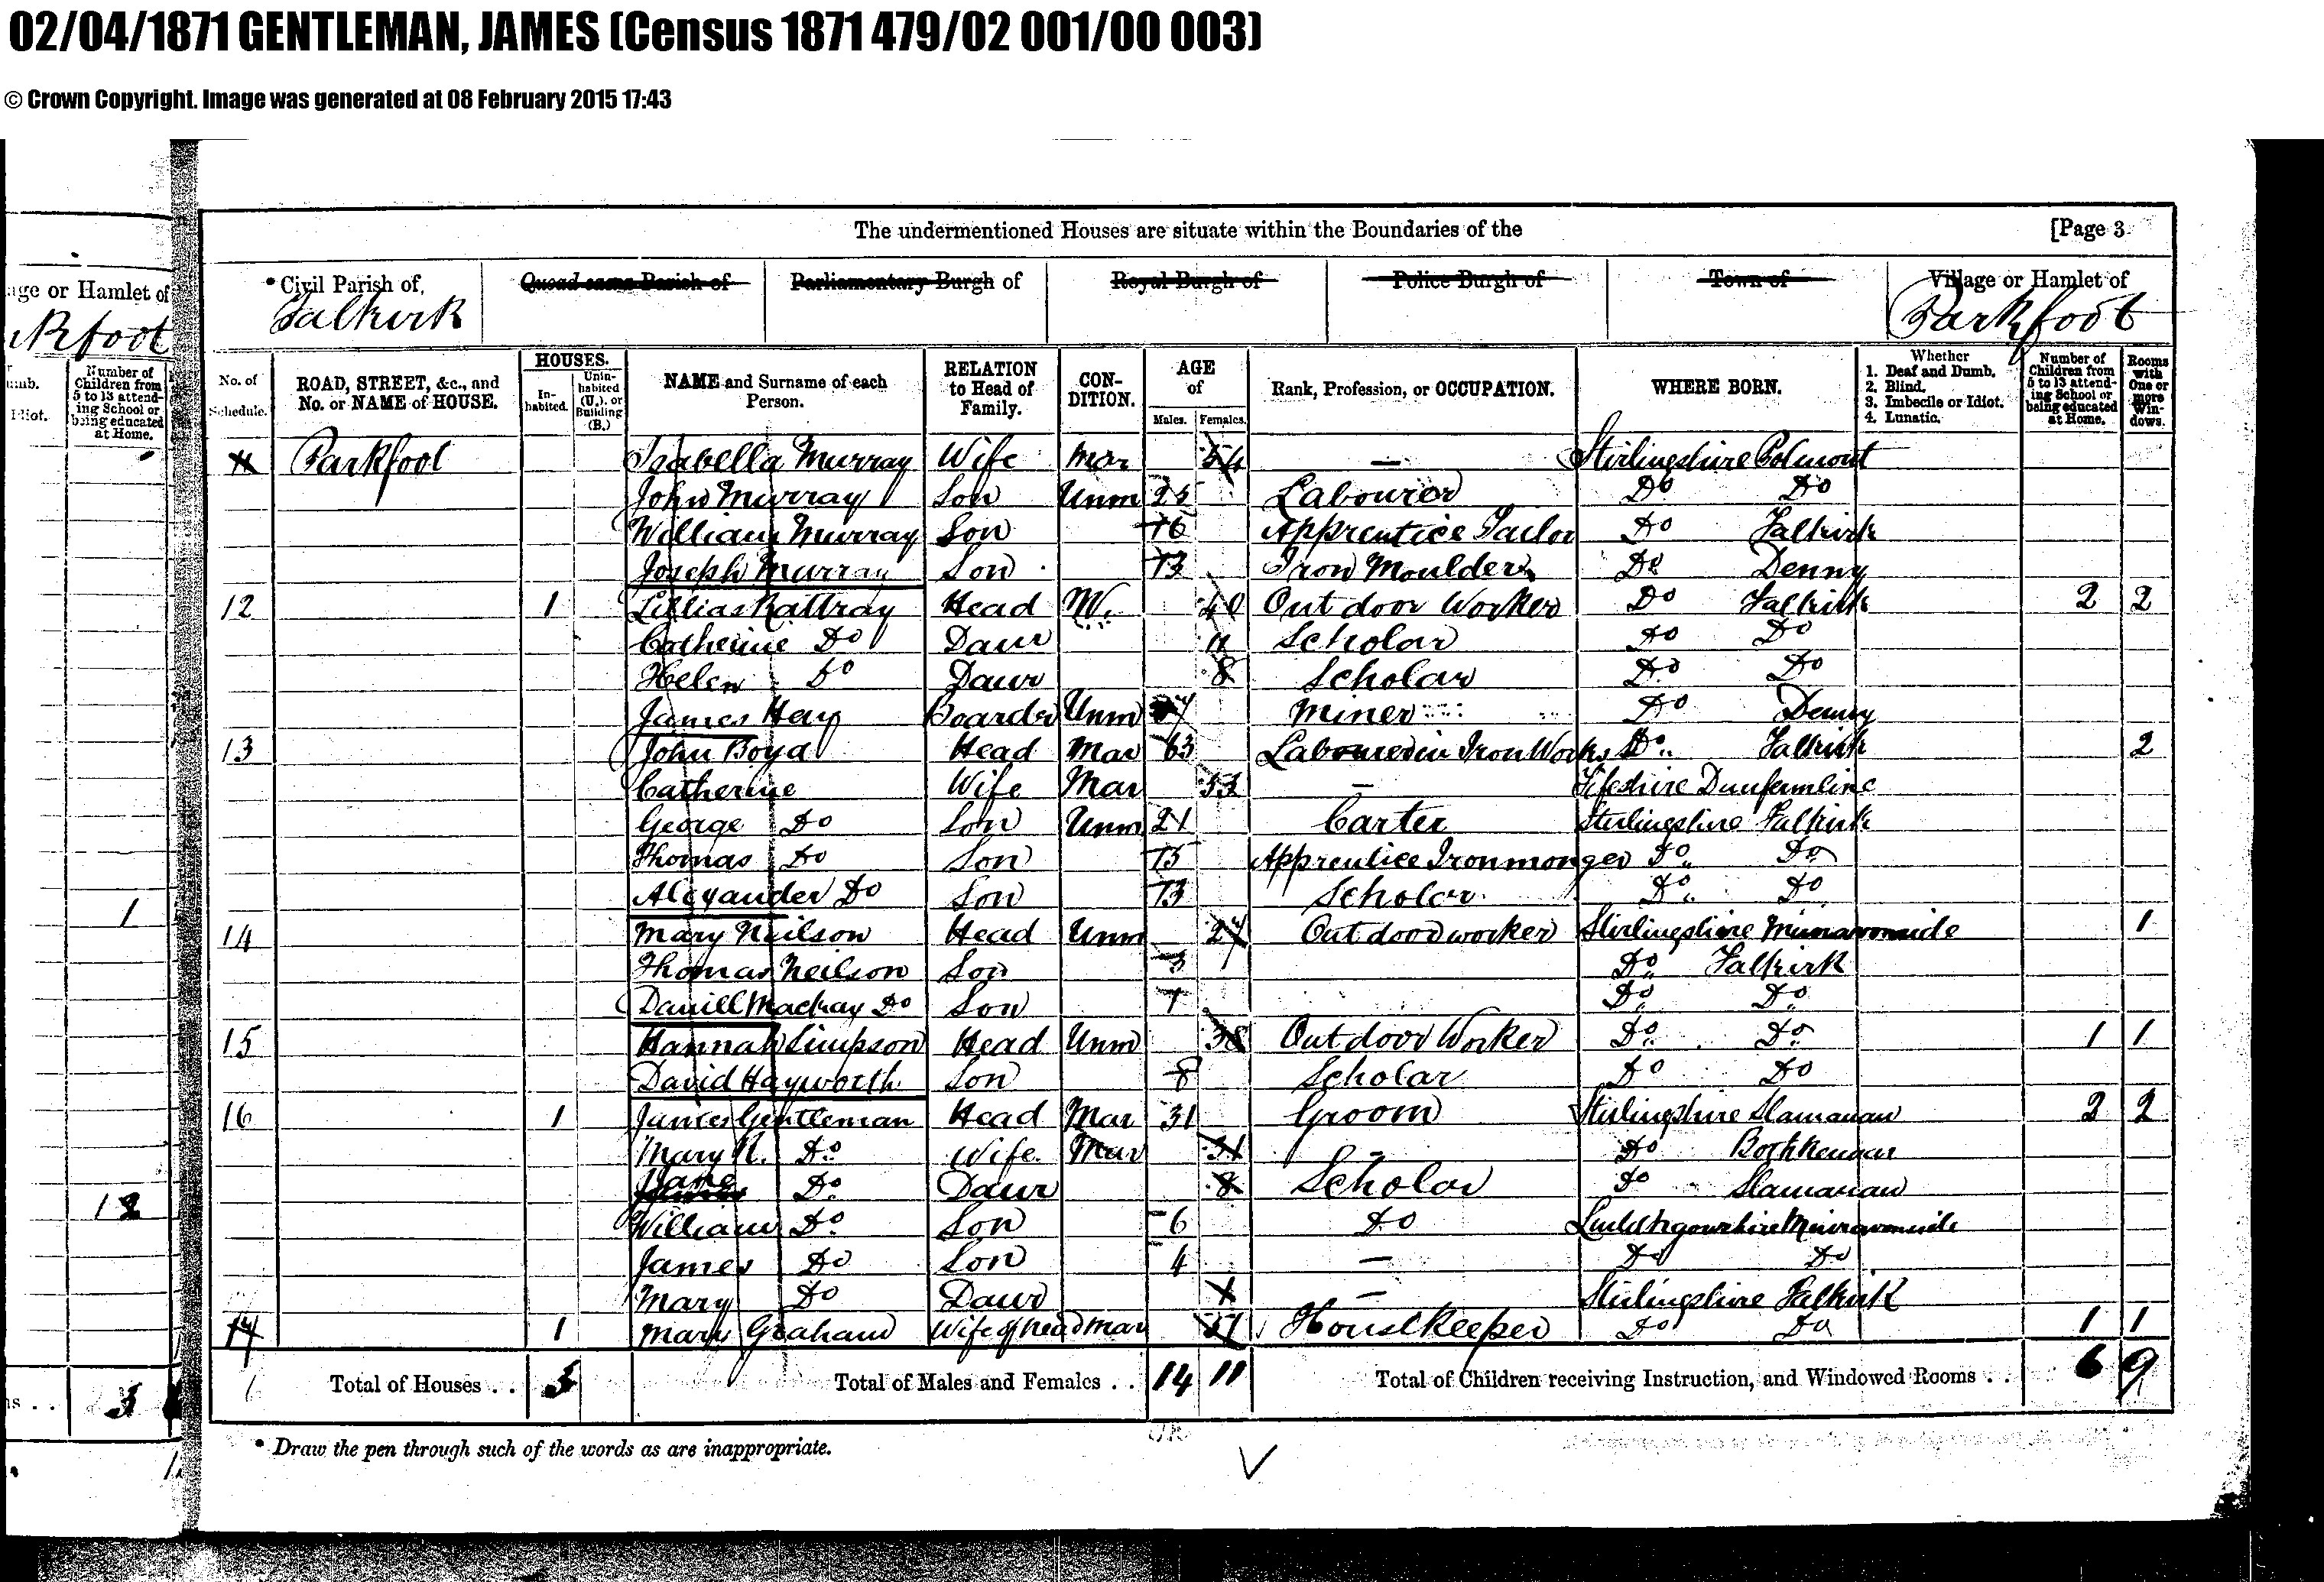 02/04/1871 GENTLEMAN, JAMES (Census 1871 479/02 001/00 003)
© Crown Copyright. Image was generated at 08 February 2015 17:43
The undermentioned Houses are situate within the Boundaries of the [Page 3
age or Hamlet of
*Civil Parish of Quoad sacra Parish of Parliamentary Burgh of Royal Burgh of Police Burgh of Town of Village or Hamlet of
rkfoot Falkirk Parkfoot
umb.
Idiot.
Number of Children from 5 to 13 attending School or being educated at Home.
No. of Schedule.
ROAD, STREET, &c., and No. or NAME of HOUSE.
HOUSES.
Inhabited.
Uninhabited (U.), or Building (B.)
NAME and Surname of each Person.
RELATION to Head of Family.
CONDITION.
AGE of
Males. Females.
Rank, Profession, or OCCUPATION.
WHERE BORN.
Whether
1. Deaf and Dumb.
2. Blind.
3. Imbecile or Idiot.
4. Lunatic.
Number of Children from 5 to 13 attending School or being educated at Home.
Rooms with One or more Windows.
11 Parkfoot Isabella Murray Wife Mar 54 — Stirlingshire Polmont
John Murray Son Unm 25 Labourer Do Do
William Murray Son 16 Apprentice Tailor Do Falkirk
Joseph Murray Son 13 Iron Moulder Do Denny
12 1 Lillias Rattray Head W. 40 Out door Worker Do Falkirk 2 2
Catherine Do Daur 11 Scholar Do Do
Helen Do Daur 8 Scholar Do Do
James Hay Boarder Unm Miner Do Denny
13 John Boyd Head Mar 63 Labourer in Iron Works Do Falkirk 2
Catherine Wife Mar 53 — Fifeshire Dunfermline
George Do Son Unm 21 Carter Stirlingshire Falkirk
Thomas Do Son 15 Apprentice Ironmonger Do Do
Alexander Do Son 13 Scholar Do Do
1
14 Mary Neilson Head Unm 27 Out door worker Stirlingshire Muiravonside 1
Thomas Neilson Son 3 Do Falkirk
Daniell Do Son 1 Do Do
15 Hannah Simpson Head Unm 38 Out door Worker Do Do 1 1
David Hayworth Son 8 Scholar Do Do
16 1 James Gentleman Head Mar 31 Groom Stirlingshire Slamanan 2 2
Mary N. Do Wife Mar 31 — Do Bothkennar
Jane Do Daur 8 Scholar Do Slamanan
12
William Do Son 6 Do Linlithgowshire Muiravonside
James Do Son 4 — Do Do
Mary Do Daur 1 — Stirlingshire Falkirk
17 1 Mary Graham Wife of head Mar Housekeeper Do Do 1 1
Total of Houses . . 3 Total of Males and Females . . 14 11 Total of Children receiving Instruction, and Windowed Rooms . . 6 9
ns . . 3
* Draw the pen through such of the words as are inappropriate.